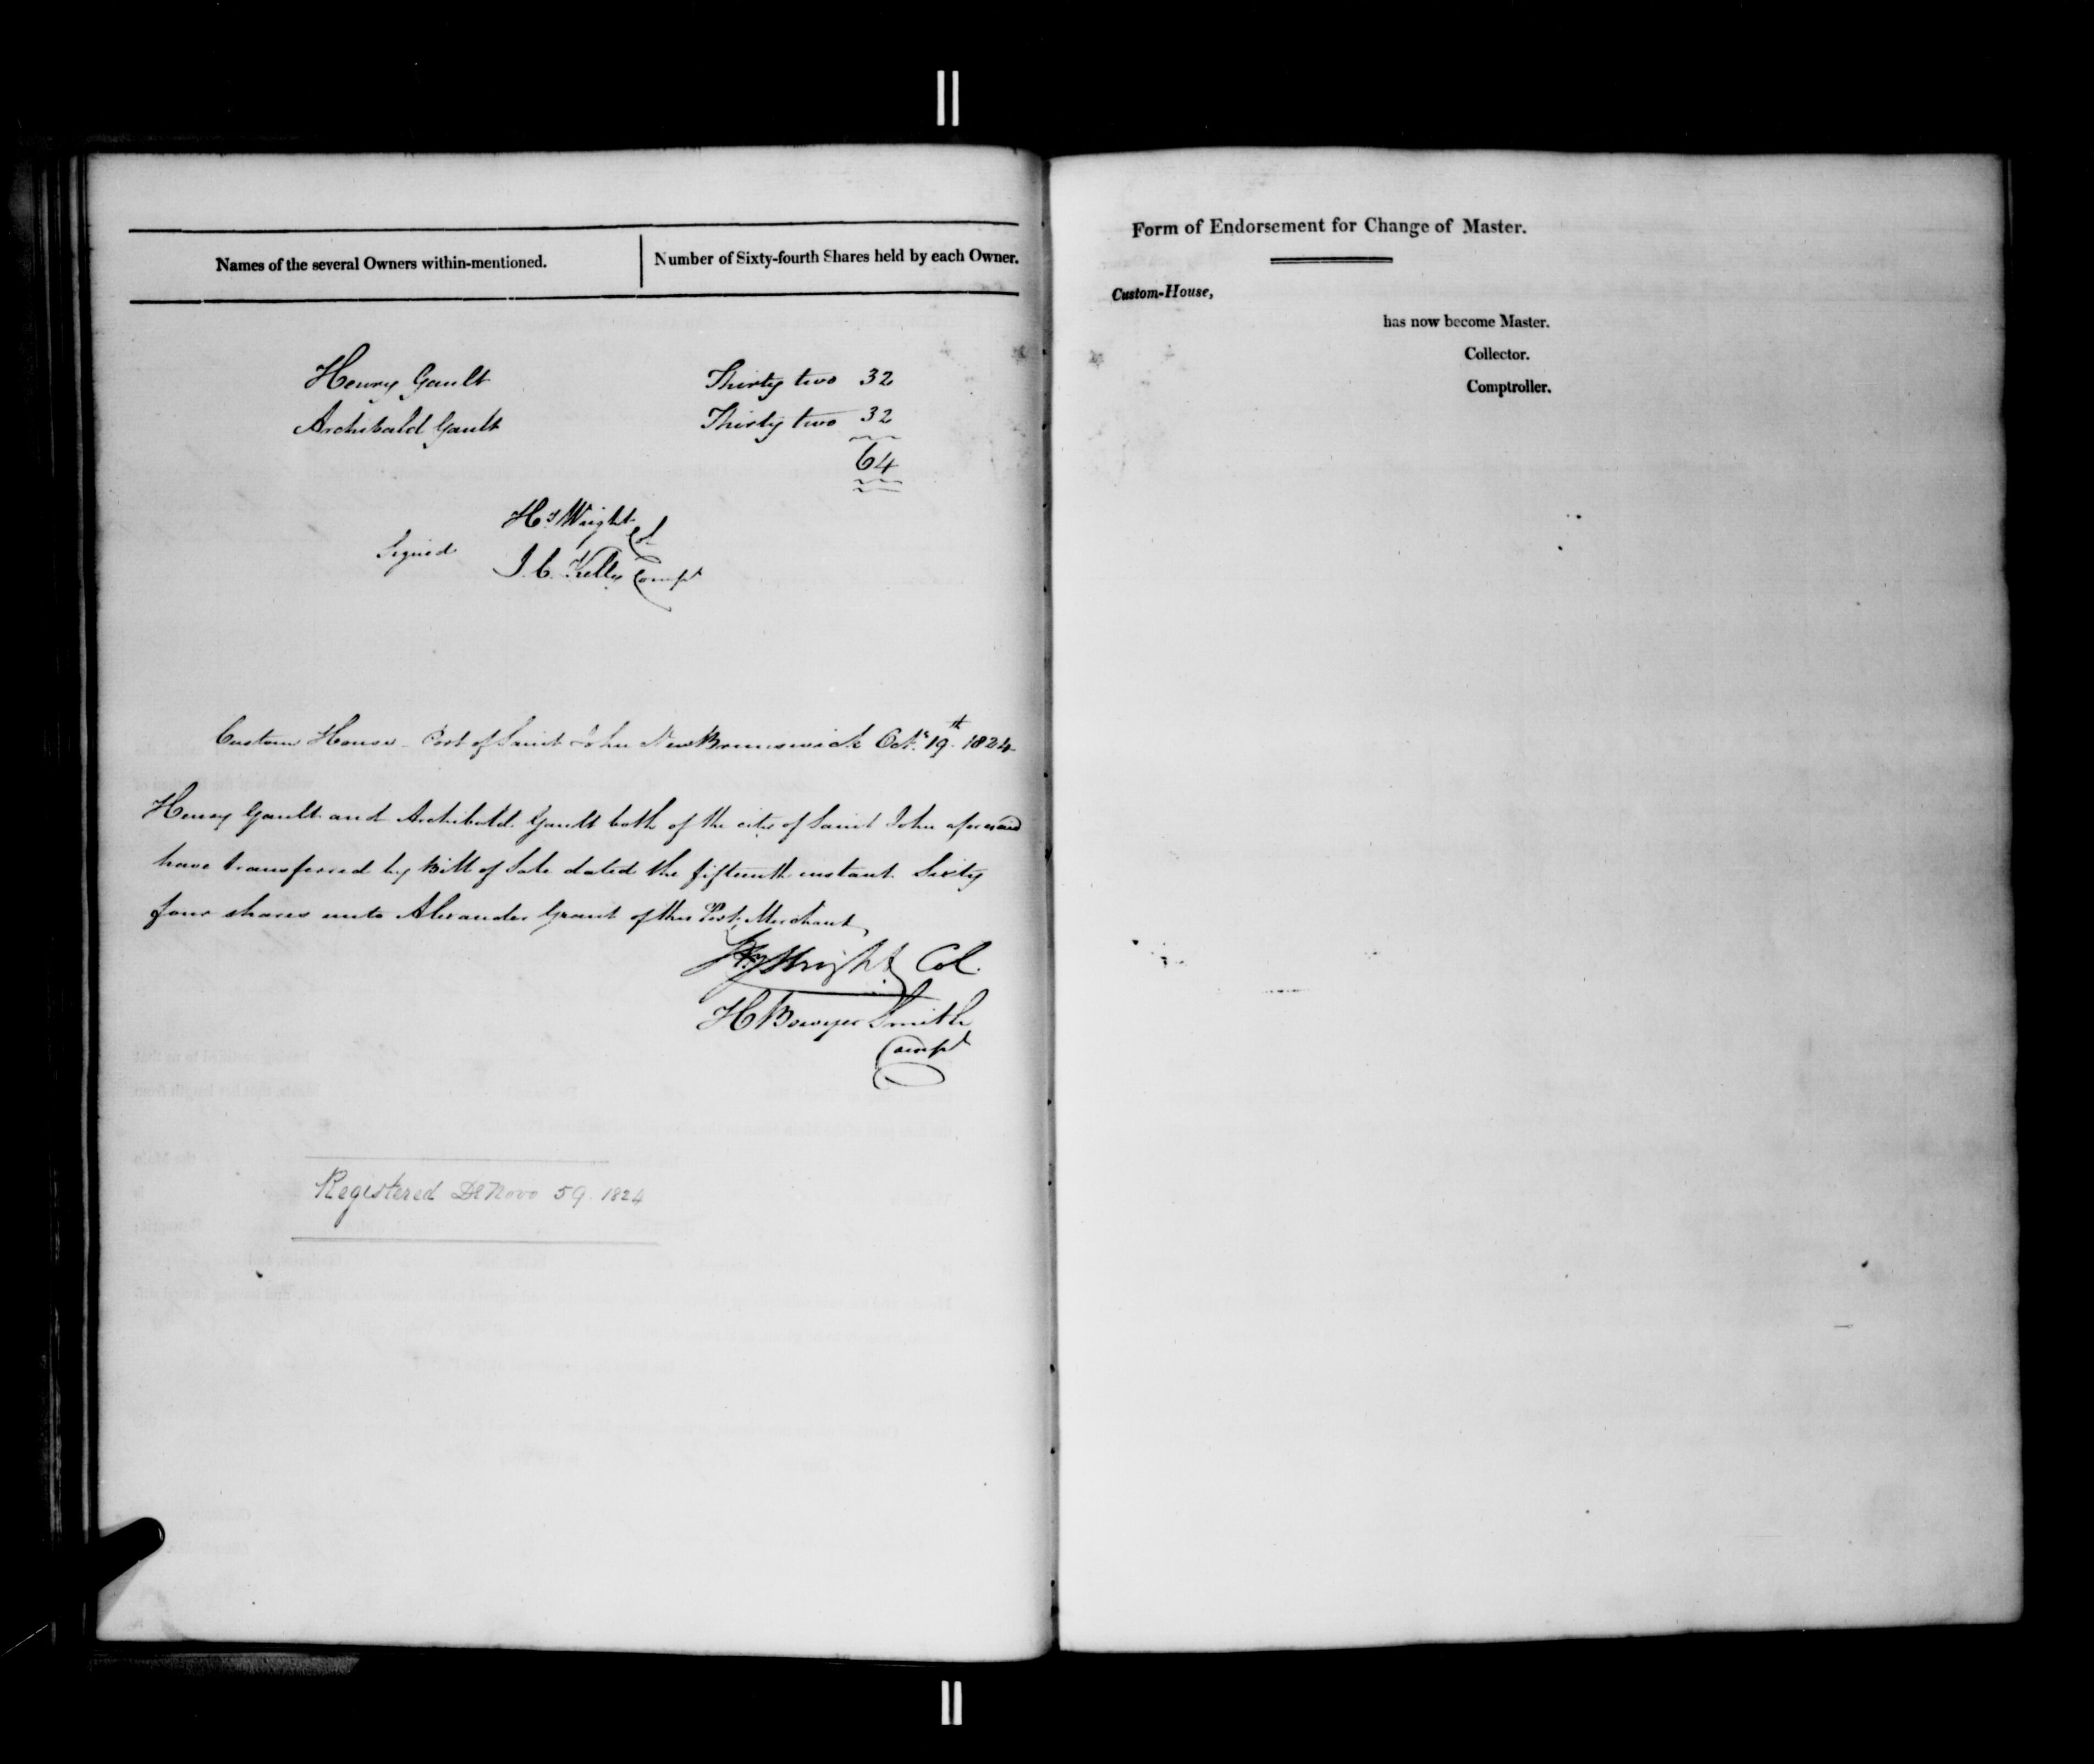 Names of the several Owners within-mentioned. Number of Sixty-fourth Shares held by each Owner.
Henry Gault Thirty two 32
Archibald Gault Thirty two 32
64
Hy Wright Col
Signed
J. C. Kelly Compr
Custom House - Port of Saint John New Brunswick Octr 19th 1824
Henry Gault and Archibald Gault both of the city of Saint John aforesaid
have transferred by Bill of Sale dated the fifteenth instant Sixty
four shares unto Alexander Grant of this Port Merchant
Hy Wright Col.
H Bowyer Smith
Compr
Registered De Novo 59. 1824
Form of Endorsement for Change of Master.
Custom-House,
has now become Master.
Collector.
Comptroller.